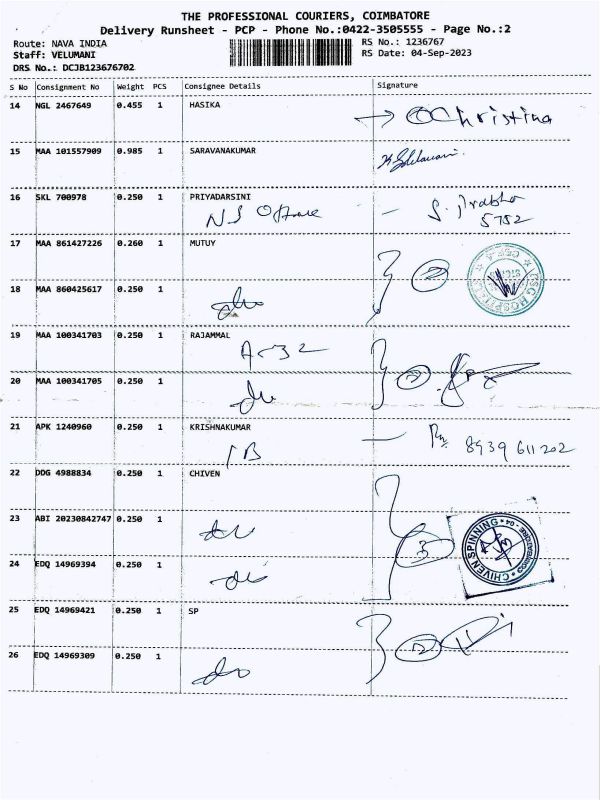 THE PROFESSIONAL COURIERS, COIMBATORE
Delivery Runsheet - PCP - Phone No.:0422-3505555 - Page No.:2
Route: NAVA INDIA
RS No.: 1236767
Staff: VELUMANI
RS Date: 04-Sep-2023
DRS No.: DCJB123676702
S No Consignment No Weight PCS Consignee Details Signature
14 NGL 2467649 0.455 1 HASIKA
Christina
15 MAA 101557909 0.985 1 SARAVANAKUMAR
16 SKL 700978 0.250 1 PRIYADARSINI
S. Prabha
5752
17 MAA 861427226 0.260 1 MUTUY
2
PSG HOSPITALS
18 MAA 860425617 0.250 1
do
19 MAA 100341703 0.250 1 RAJAMMAL
2
20 MAA 100341705 0.250 1
do
21 APK 1240960 0.250 1 KRISHNAKUMAR
8939 611 202
22 DDG 4988834 0.250 1 CHIVEN
23 ABI 20230842747 0.250 1
do
3
CHIVEN SPINNING
24 EDQ 14969394 0.250 1
do
25 EDQ 14969421 0.250 1 SP
2
26 EDQ 14969309 0.250 1
do